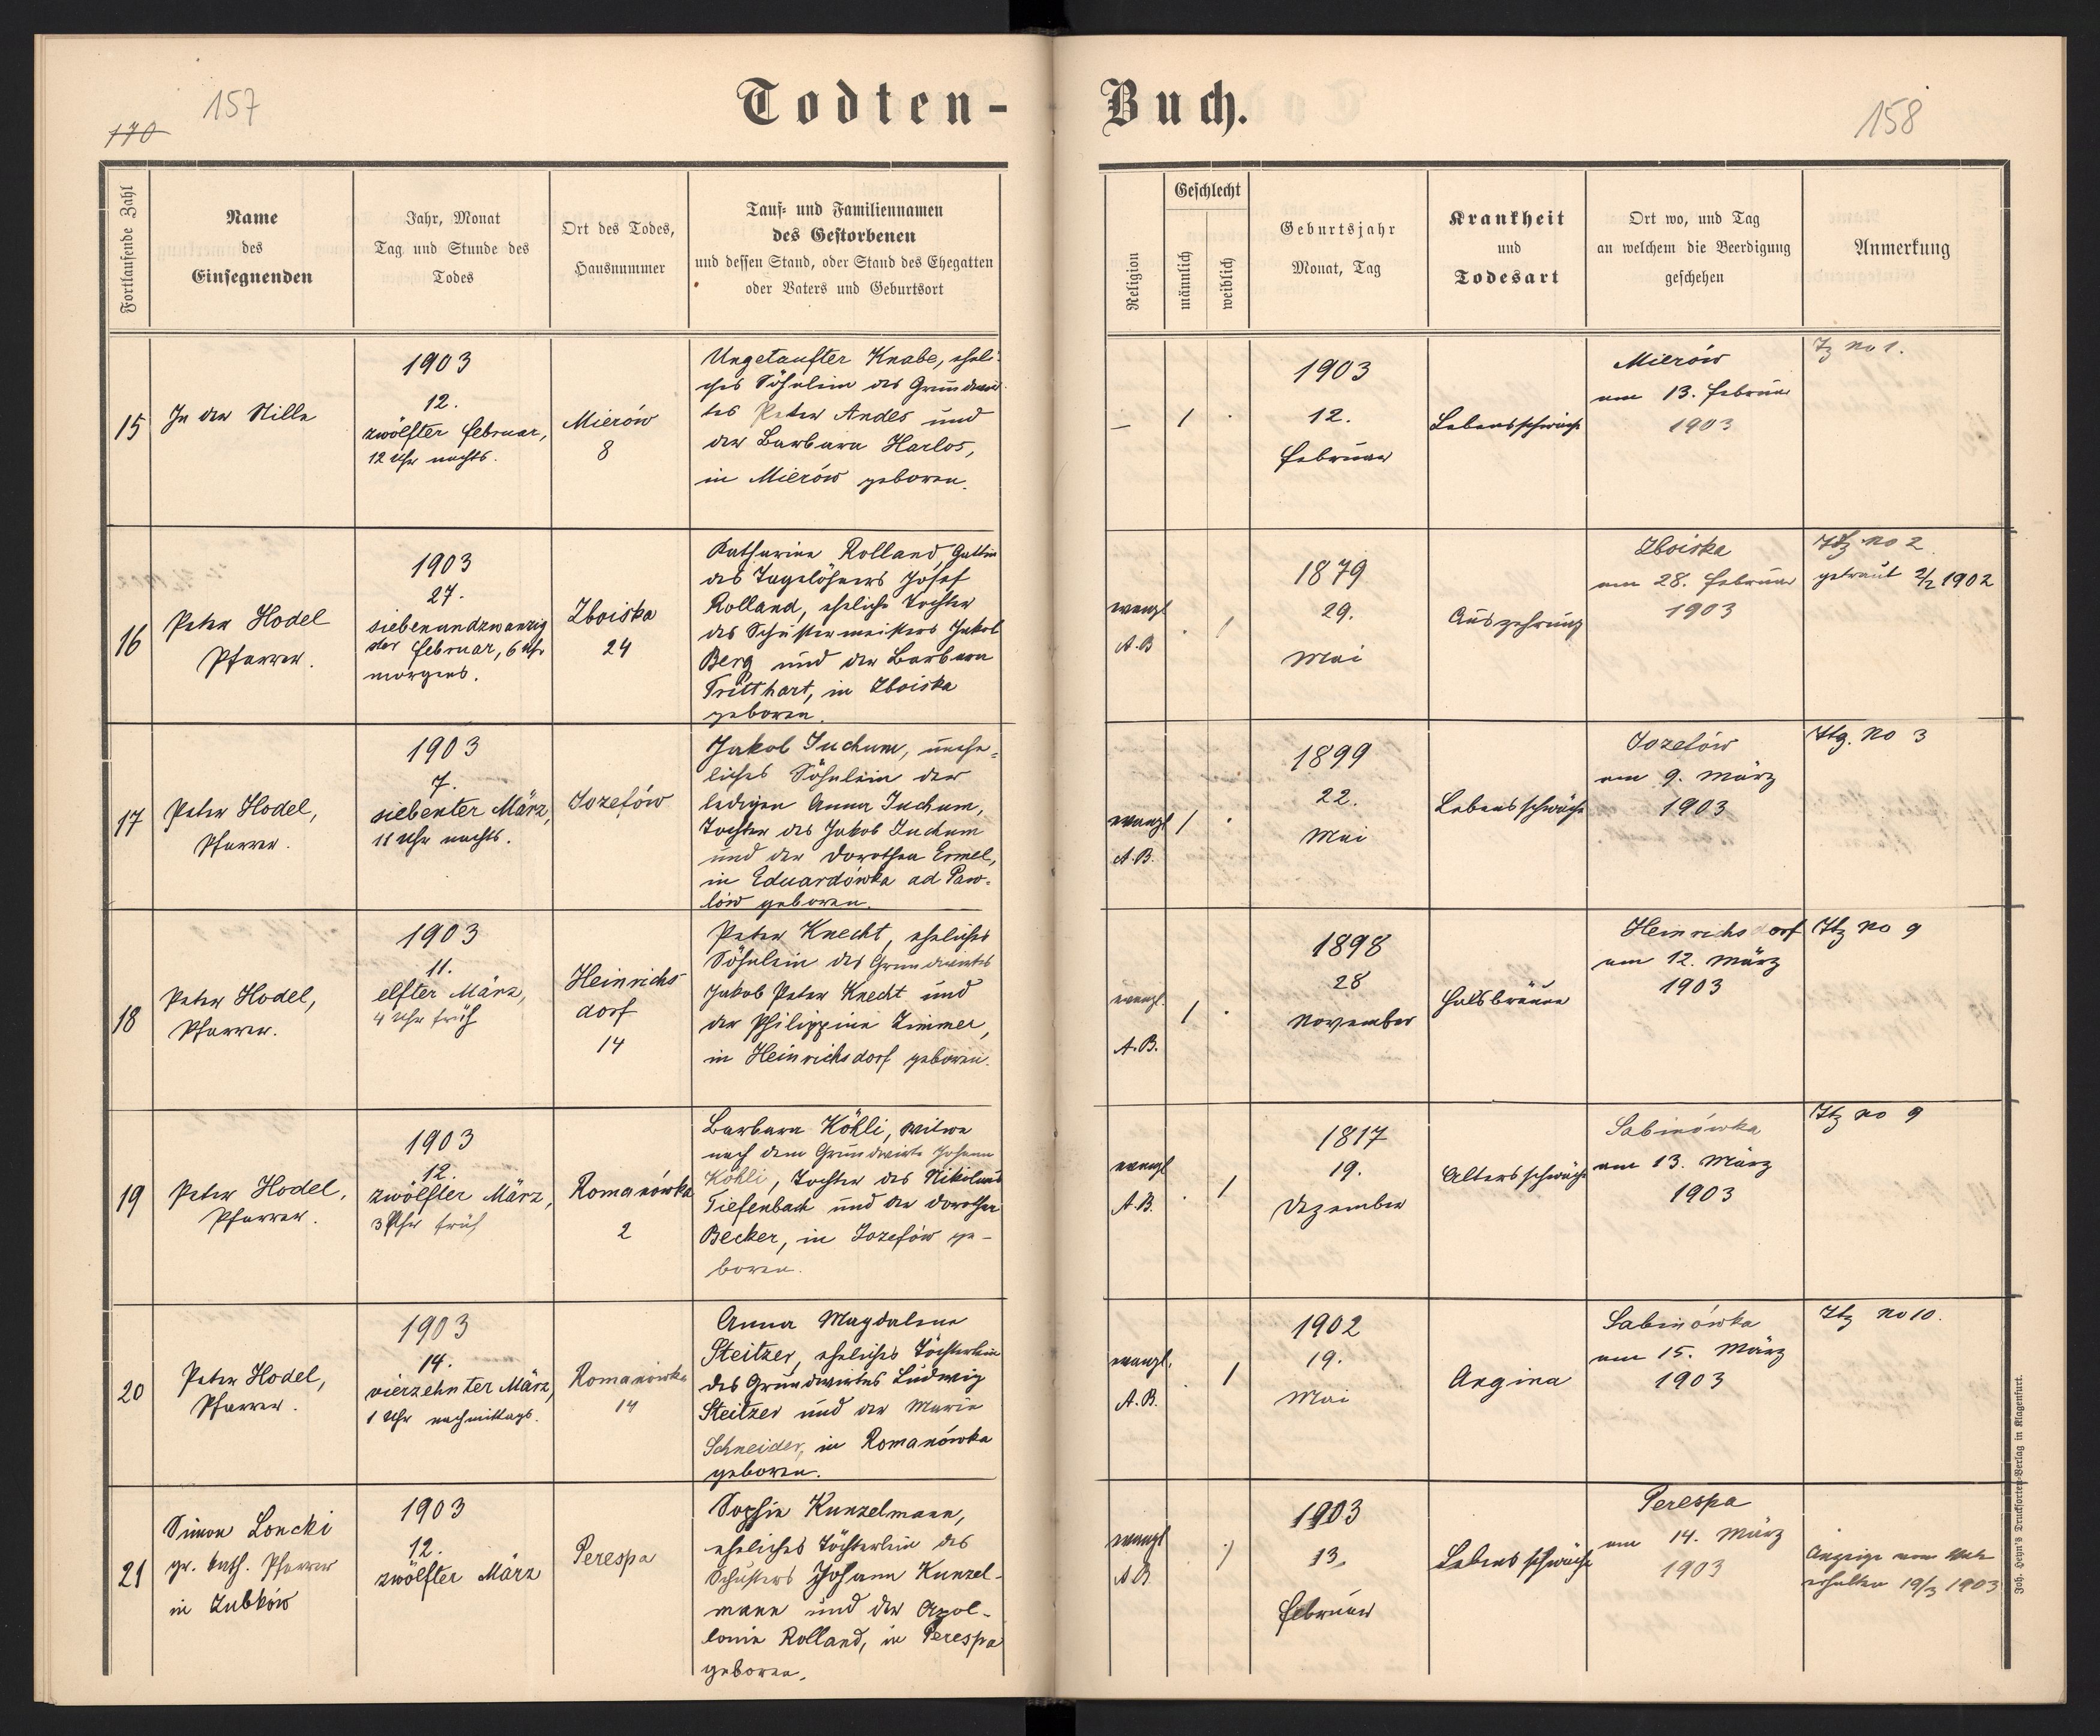 157
170
Todten-
Fortlaufende Zahl
Name
des
Einsegnenden
Jahr, Monat
Tag und Stunde des
Todes
Ort des Todes,
Hausnummer
Tauf- und Familiennamen
des Gestorbenen
und dessen Stand, oder Stand des Ehegatten
oder Vaters und Geburtsort
15
In der Stille
1903
12.
zwölfter Februar,
12 Uhr nachts.
Mierów
8
Ungetaufter Knabe, eheli-
ches Söhnlein des Grundwir-
tes Peter Andes und
der Barbara Harlos,
in Mierów geboren.
16
Peter Hodel
Pfarrer.
1903
27.
siebenundzwanzig
ster Februar, 6 Uhr
morgens.
Zboiska
24
Katharina Rolland Gattin
des Tagelöhners Josef
Rolland, eheliche Tochter
des Schustermeisters Jakob
Berg und der Barbara
Tritthart, in Zboiska
geboren.
17
Peter Hodel,
Pfarrer.
1903
7.
siebenter März,
11 Uhr nachts.
Jozefów
Jakob Juchum, unehe-
liches Söhnlein der
ledigen Anna Juchum,
Tochter des Jakob Juchum
und der Dorothea Ermel,
in Eduardówka ad Paw-
lów geboren.
18
Peter Hodel,
Pfarrer.
1903
11.
elfter März,
4 Uhr früh
Heinrichs
dorf
14
Peter Knecht, eheliches
Söhnlein des Grundwirtes
Jakob Peter Knecht und
der Philippine Zimmer,
in Heinrichsdorf geboren.
19
Peter Hodel,
Pfarrer.
1903
12.
zwölfter März,
3 Uhr früh
Romanówka
2
Barbara Köhli, Witwe
nach dem Grundwirte Johann
Köhli, Tochter des Nikolaus
Tiefenbach und der Dorothea
Becker, in Jozefów ge-
boren.
20
Peter Hodel,
Pfarrer.
1903
14.
vierzehnter März,
1 Uhr nachmittags.
Romanówka
14
Anna Magdalena
Steitzer, eheliches Töchterlein
des Grundwirtes Ludwig
Steitzer und der Maria
Schneider, in Romanówka
geboren.
21
Simon Loncki
gr. kath. Pfarrer
in Zubków
1903
12.
zwölfter März
Perespa
Sophie Kunzelmann,
eheliches Töchterlein des
Schusters Johann Kunzel-
mann und der Apol-
lonia Rolland, in Perespa
geboren.
Buch.
158
Religion
Geschlecht
männlich
weiblich
Geburtsjahr
Monat, Tag
Krankheit
und
Todesart
Ort wo, und Tag
an welchem die Beerdigung
geschehen
Anmerkung
—
1
.
1903
12.
Februar
Lebensschwäche
Mierów
am 13. Februar
1903
no 1.
evangl.
A.B
.
1
1879
29.
Mai
Auszehrung
Zboiska
am 28. Februar
1903
no 2
getraut 2/2 1902
evangl
A.B.
1
.
1899
22.
Mai
Lebensschwäche
Jozefów
am 9. März
1903
No 3
evangl.
A.B.
1
.
1898
28
November
Halsbräune
Heinrichsdorf
am 12. März
1903
no 9
evangl
A.B.
.
1
1817
19.
Dezember
Altersschwäche
Sabinówka
am 13. März
1903
no 9
evangl.
A.B.
.
1
1902
19.
Mai
Angina
Sabinówka
am 15. März
1903
no 10.
evangl
A.B.
.
1
1903
13.
Februar
Lebensschwäche
Perespa
am 14. März
1903
Anzeige vom
erhalten 19/3 1903
Joh. Heyn's Drucksorten-Verlag in Klagenfurt.